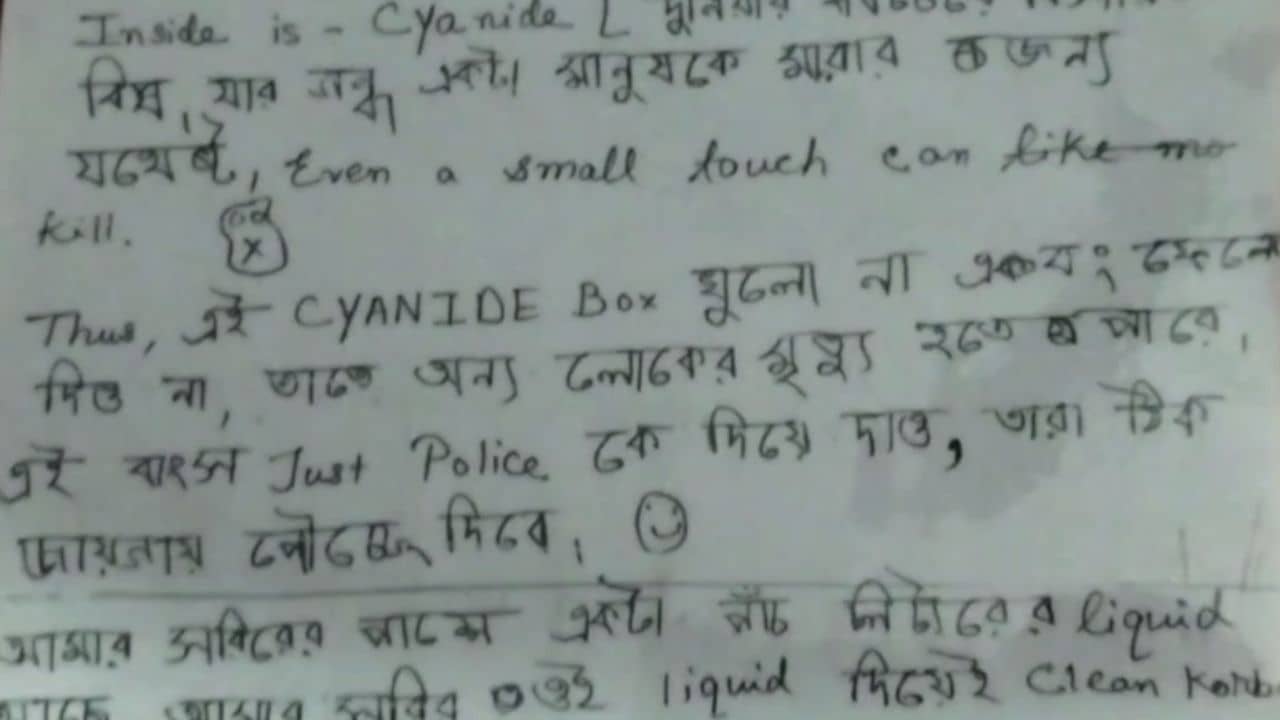 Inside is - Cyanide [ দুনিয়ার
বিষ, যার গন্ধ একটা মানুষকে মারার জন্য
যথেষ্ট, Even a small touch can
kill.
Thus, এই CYANIDE Box খুলো না এবং ফেলে
দিও না, তাতে অন্য লোকের মৃত্যু হতে পারে,
এই বাক্স Just Police কে দিয়ে দাও, তারা ঠিক
জায়গায় পৌছে দিবে,
আমার শরিরের পাশে একটা পাঁচ লিটারের liquid
আছে আমার শরির ওই liquid দিয়েই Clean Korb